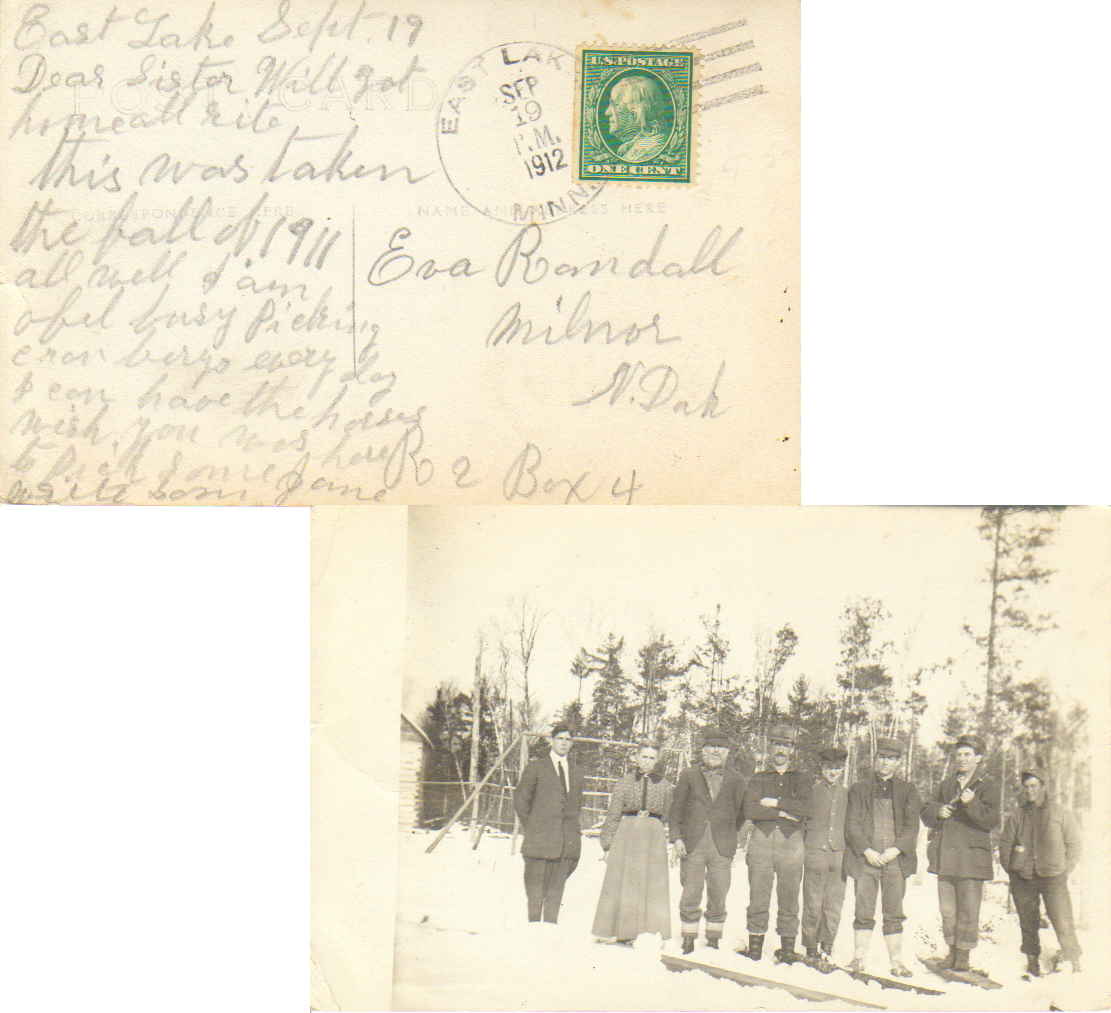 East Lake Sept. 19
Dear Sister Will got
home all rite
this was taken
the fall of 1911
all well I am
busy Picking
cran berys every day
I can have the horses
wish you was here
to Pick some
write soon Jane
POST CARD
CORRESPONDENCE HERE
NAME AND ADDRESS HERE
EAST LAK
SEP
19
P.M.
1912
MINN.
U.S. POSTAGE
ONE CENT
Eva Randall
Milnor
N. Dak
R 2 Box 4